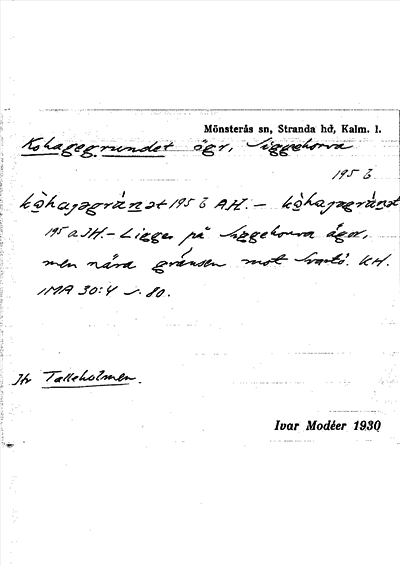 Mönsterås sn, Stranda hd, Kalm. l.
Kohagegrundet ögr, Siggehorva
195 b
kòhajəgránət 195 b A.H. – kòhajəgránət
195 a J.H. – Ligger på Siggehorva ägor,
men nära gränsen mot Svartö. K.H.
IMA 30:4 s. 80.
Jfr Talleholmen.
Ivar Modéer 1930